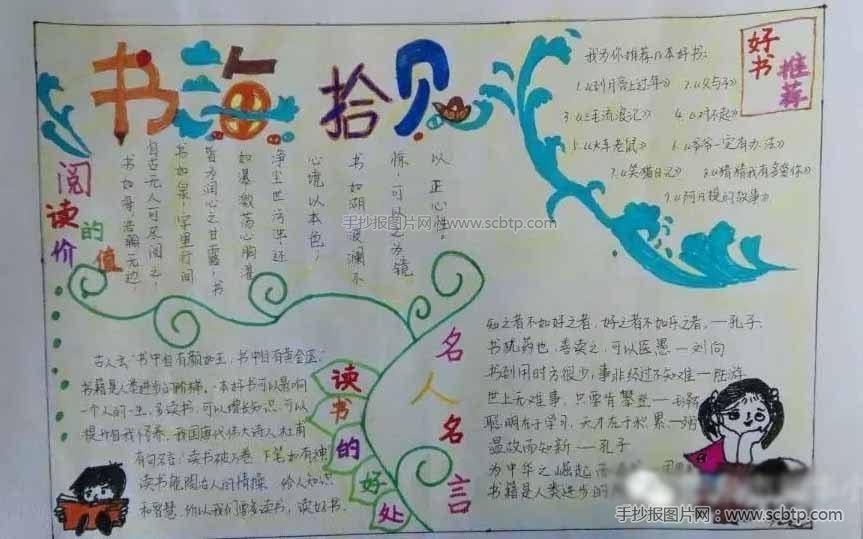 书海拾贝
好书推荐
我为你推荐几本好书:
1.《到月亮上过年》 2.《父与子》
3.《三毛流浪记》 4.《对不起》
5.《火车老鼠》 6.《爷爷一定有办法》
7.《笑猫日记》 8.《猜猜我有多爱你》
9.《阿凡提的故事》
阅读的价值
书如海,浩瀚无边,
自古无人可尽阅之,
书如泉,字里行间
皆为润心之甘露,书
如瀑激荡心胸,灌
净尘世污浊,还
心境以本色,
书如湖,波澜不
惊,可以之为镜
以正心性。
手抄报图片网:www.scbtp.com
古人云“书中自有颜如玉,书中自有黄金屋”
书籍是人类进步的阶梯。一本好书可以影响
一个人的一生,多读书,可以增长知识,可以
提升自我修养,我国唐代伟大诗人杜甫
有句名言:读书破万卷 下笔如有神
读书能陶冶人的情操 给人知识
和智慧,所以我们要多读书,读好书.
读书的好处
名人名言
知之者不如好之者,好之者不如乐之者,—孔子.
书犹药也,善读之,可以医愚—刘向
书到用时方很少,事非经过不知难—陆游
世上无难事,只要肯攀登—毛
聪明在于学习,天才在于积累—
温故而知新—孔子
为中华之崛起而
书籍是人类进步的
手抄报图片网:www.scbtp.com